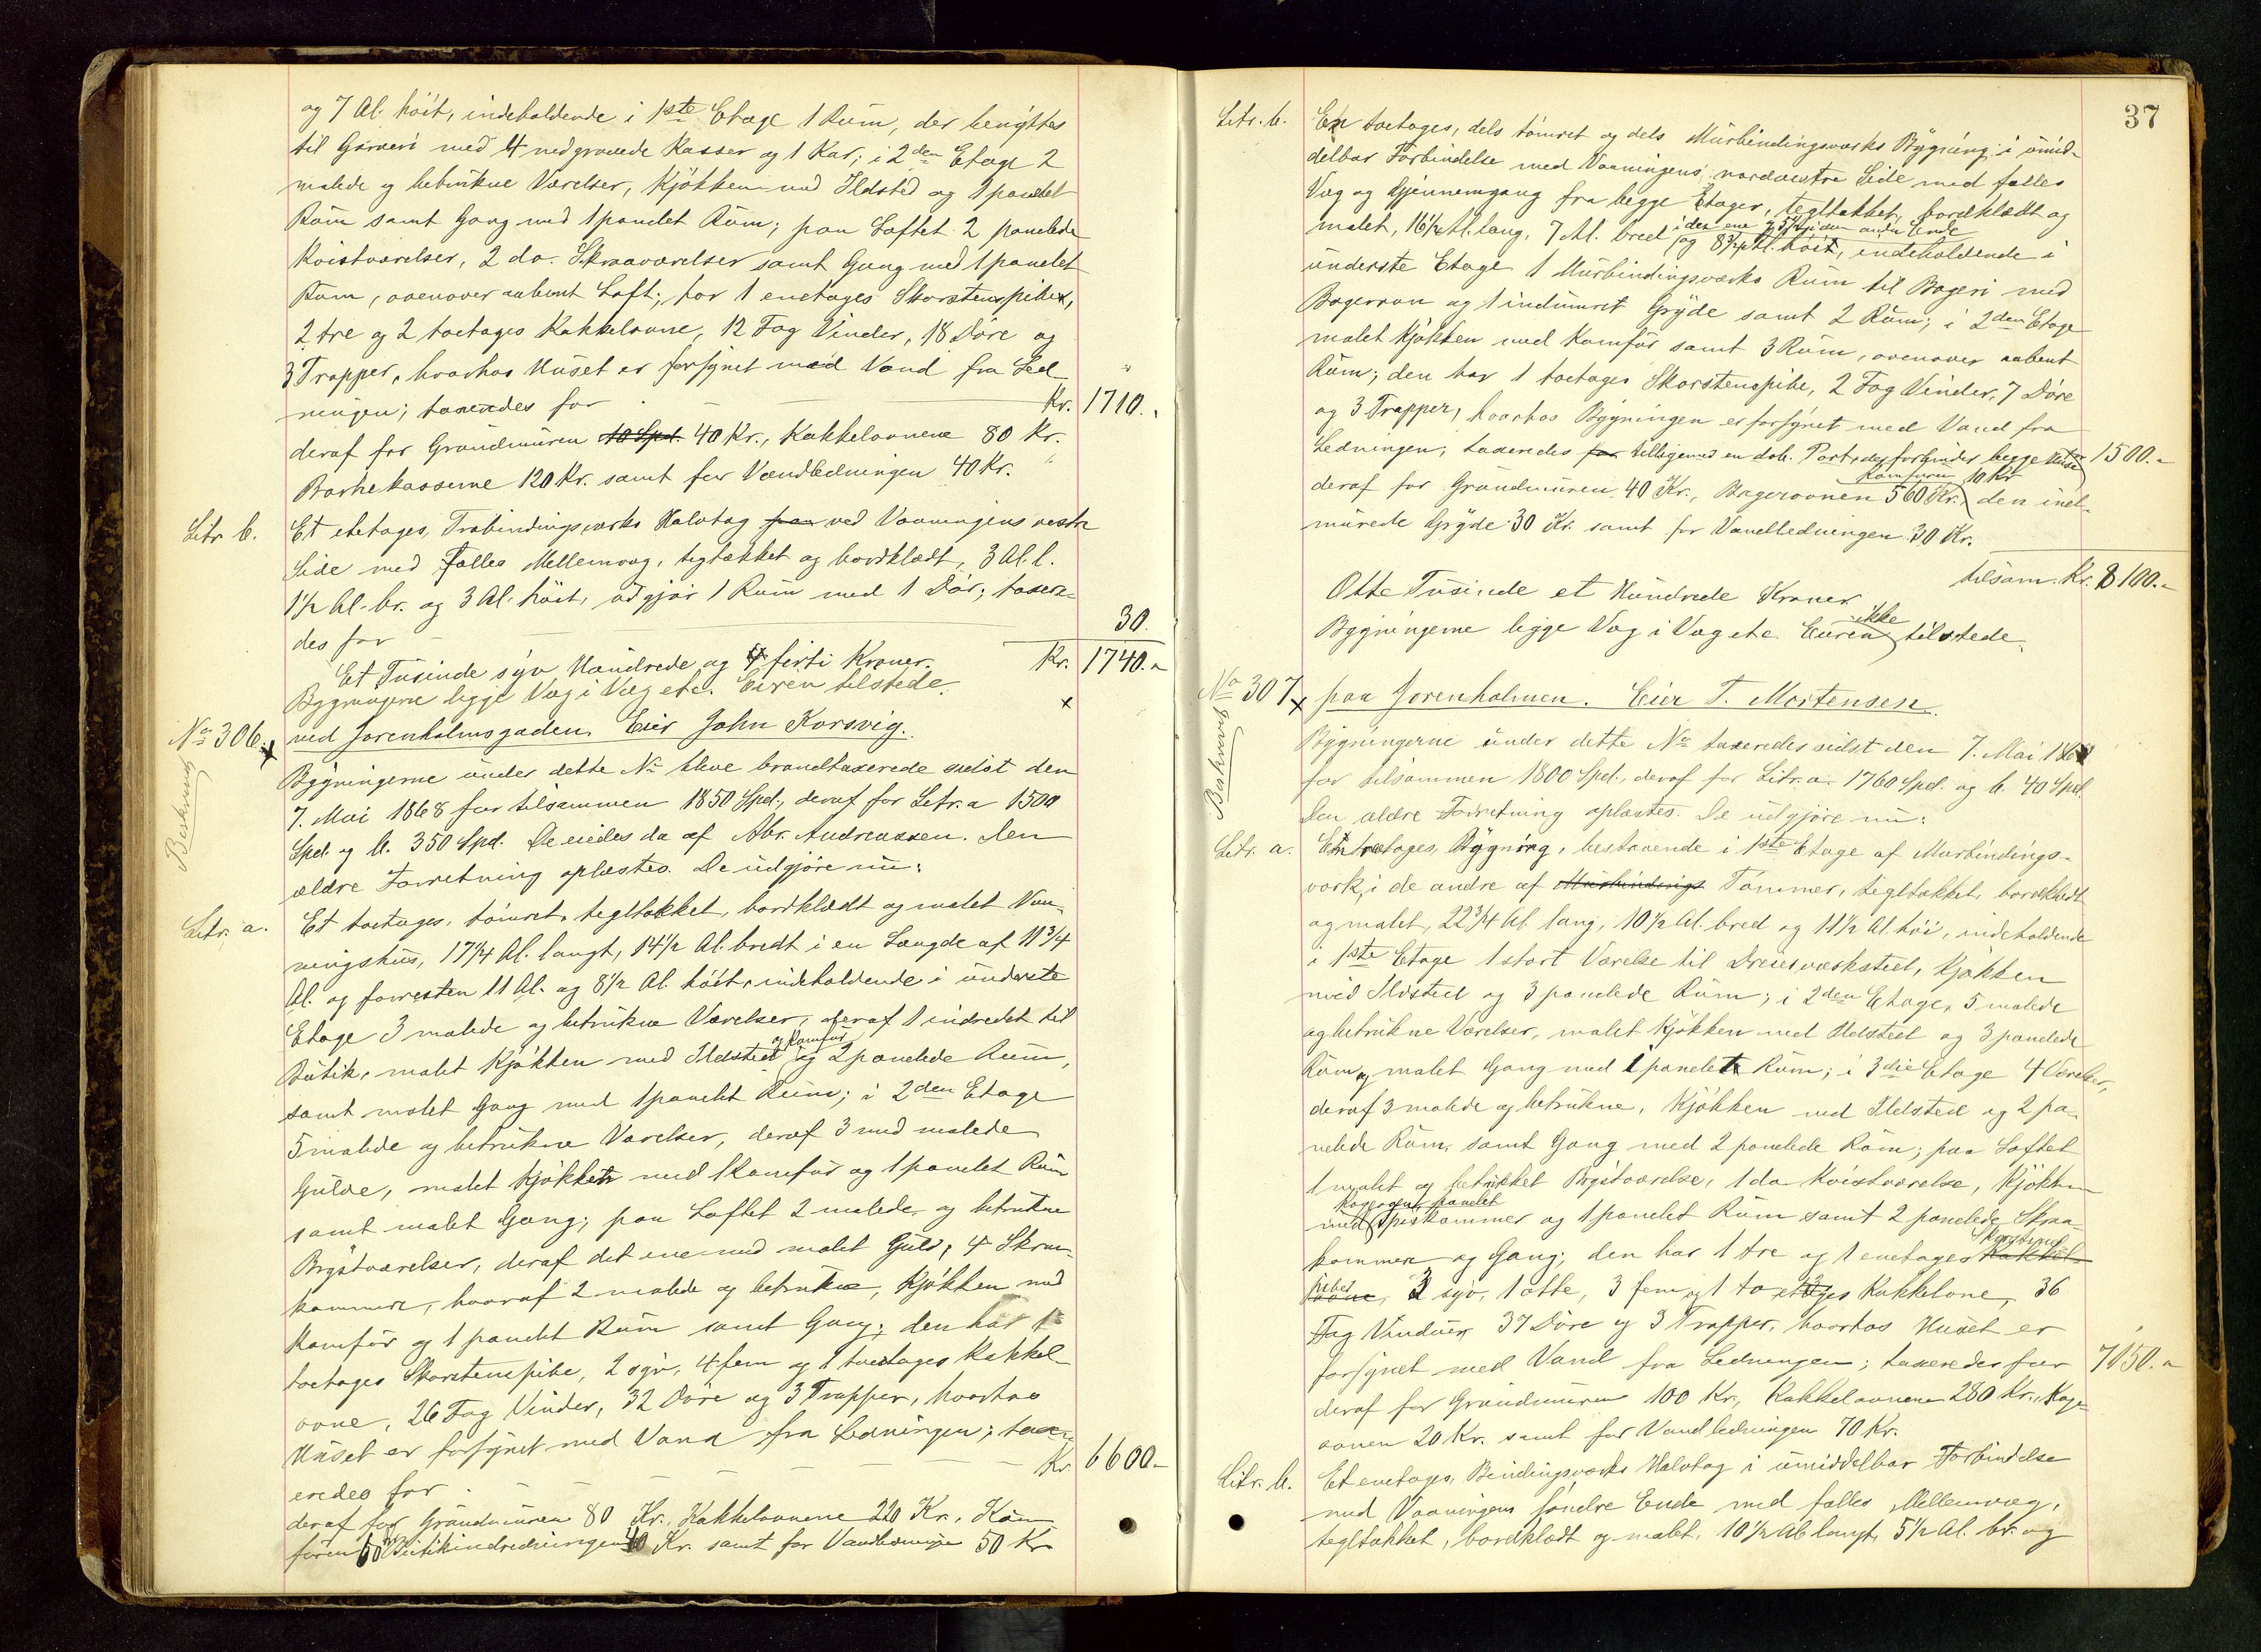 og 7 Al. höit, indeholdende i 1ste Etage 1 Rum, der benyttes
til Garveri med 4 nedgravede Kasser og 1 Kar; i 2den Etage 2
malede og betrukne Værelser, Kjökken med Ildsted og 1 panelet
Rum samt Gang med 1 panelet Rum; paa Loftet 2 panelede
Kvistværelser, 2 do. Skraaværelser samt Gang med 1 panelet
Rum, ovenover aabent Loft; har 1 enetages Skorstenspibe,
2 tre og 2 toetages Kakkelovne, 12 Fag Vinduer, 18 Döre og
3 Trapper, hvorhos Huset er forsynet med Vand fra Led
ningen; taxeredes for Kr. 1710.
deraf for Grundmuren 10 Spd. 40 Kr., Kakkelovnene 80 Kr.
Barkekasserne 120 Kr. samt for Vandledningen 40 Kr.
Litr b. Et etetages, Træbindingsværks Halvtag ved Vaaningens vestre
Side med fælles Mellemvæg, tegltækket og bordklædt, 3 Al. l.
1 1/2 Al. br. og 3 Al. höit, udgjör 1 Rum med 1 Dör; taxere-
des for 30.
Et Tusinde syv Hundrede og firti Kroner. Kr. 1740.-
Bygningerne ligge Væg i Væg etc. Eieren tilstede.
No 306. ved Jorenholmsgaden. Eier John Korsvig.
Beskrevet
Bygningerne under dette No bleve brandtaxerede sidst den
7. Mai 1868 for tilsammen 1850 Spd., deraf for Litr. a 1500
Spd. og b. 350 Spd. De eiedes da af Abr. Andreassen. Den
ældre Forretning oplæstes. De udgjöre nu:
Litr. a. Et toetages, tömret, tegltækket, bordklædt og malet Vaa-
ningshus, 17 1/4 Al. langt, 14 1/2 Al. bredt i en Længde af 11 3/4
Al. og forresten 11 Al. og 8 1/2 Al. höit, indeholdende i underste
Etage 3 malede og betrukne Værelser, deraf 1 indredet til
Butik, malet Kjökken med Ildsted og Komfur og 2 panelede Rum,
samt malet Gang med 1 panelet Rum; i 2den Etage
5 malede og betrukne Værelser, deraf 3 med malede
Gulve, malet Kjökken med 1 Komfur og 1 panelet Rum
samt malet Gang; paa Loftet 2 malede og betrukne
Brystværelser, deraf det ene med malet Gulv, 4 Skraa-
kammere, hvoraf 2 malede og betrukne, Kjökken med
Komfur og 1 panelet Rum samt Gang; den har 1
toetages Skorstenspibe, 2 syv, 4 fem og 1 toetages Kakkel-
ovne, 26 Fag Vinduer, 32 Döre og 3 Trapper, hvorhos
Huset er forsynet med Vand fra Ledningen; tax-
eredes for Kr 6600.-
deraf for Grundmuren 80 Kr., Kakkelovnene 220 Kr., Kom
furen 60 Butikindredningen 40 Kr. samt for Vandledningen 50 Kr
37
Litr. b. En toetages, dels tömret og dels Murbindingsværks Bygning i umid-
delbar Forbindelse med Vaaningens nordvestre Side med fælles
Væg og Gjennemgang fra begge Etager, tegltækket, bordklædt og
malet, 16 1/2 Al. lang, 7 Al. bred i den ene og 5 1/4 i den anden Ende og 8 3/4 Al. höit, indeholdende i
underste Etage 1 Murbindingsværks Rum til Bageri med
Bagerovn og 1 indmuret Gryde samt 2 Rum; i 2den Etage
malet Kjökken med Komfur samt 3 Rum, ovenover aabent
Rum; den har 1 toetages Skorstenspibe, 2 Fag Vinduer, 7 Döre
og 3 Trapper, hvorhos Bygningen er forsynet med Vand fra
Ledningen, taxeredes for tilligemed en dob. Port, der forbinder begge Huse 1500.-
deraf for Grundmuren 40 Kr., Bagerovnen 560 Kr. Komfuren 10 Kr den ind-
murede Gryde 30 Kr. samt for Vandledningen 30 Kr.
tilsam. Kr. 8100.-
Otte Tusinde et Hundrede Kroner
Bygningerne ligge Væg i Væg etc. Eieren ikke tilstede.
No 307 paa Jorenholmen. Eier T. Mortensen.
Beskrevet
Bygningerne under dette No taxeredes sidst den 7. Mai 1868
for tilsammen 1800 Spd. deraf for Litr. a. 1760 Spd. og b. 40 Spd.
Den ældre Forretning oplæstes. De udgjöre nu:
Litr. a. En treetages, Bygning, bestaaende i 1ste Etage af Murbindings-
værk, i de andre af Murbindings Tömmer, tegltækket, bordklædt
og malet, 22 3/4 Al. lang, 10 1/2 Al. bred og 11 1/2 Al. höi, indeholdende
i 1ste Etage 1 stort Værelse til Dreierværksted, Kjökken
med Ildsted og 3 panelede Rum; i 2den Etage, 5 malede
og betrukne Værelser, malet Kjökken med Ildsted og 3 panelede
Rum og malet Gang med 1 panelet Rum; i 3die Etage 4 Værelser,
deraf 3 malede og betrukne, Kjökken med Ildsted og 2 pa-
nelede Rum, samt Gang med 2 panelede Rum; paa Loftet
1 malet og betrukket Brystværelse, 1 do Kvistværelse, Kjökken
med Kogeovn, panelet Spiskammer og 1 panelet Rum samt 2 panelede Skraa-
kammere og Gang; den har 1 tre og 1 enetages Kakkel Skorstens
ovne, piber 2 syv, 1 otte, 3 fem og 1 toetages Kakkelovne, 36
Fag Vinduer 37 Döre og 3 Trapper, hvorhos Huset er
forsynet med Vand fra Ledningen; taxeredes for 7050.-
deraf for Grundmuren 100 Kr., Kakkelovnene 280 Kr., Koge-
ovnen 20 Kr. samt for Vandledningen 70 Kr.
Litr. b. Et enetages, Bindingsværks Halvtag i umiddelbar Forbindelse
med Vaaningens söndre Ende med fælles Mellemvæg,
tegltækket, bordklædt og malet, 10 1/2 Al. langt, 5 1/2 Al. br. og